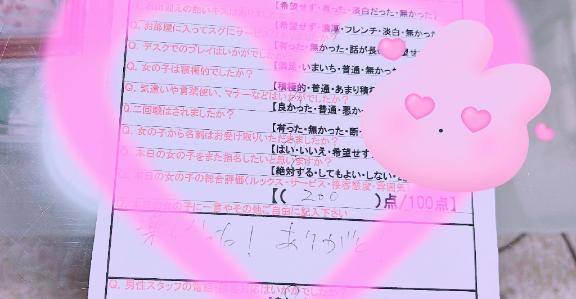 Q. お部屋に入ってスグにサービス 【希望せず・濃厚・フレンチ・淡白・無かっ
Q. デスクでのプレイはいかがでした 【有った・無かった・話が長
Q. 女の子は積極的でしたか? 【満足・いまいち・普通・無かっ
Q. 気遣いや言葉使い、マナーなどはいかがでしたか? 【積極的・普通・あまり積
Q. 二回戦はされましたか? 【良かった・普通・悪か
Q. 女の子から名刺はお受け取りいただきましたか? 【有った・無かった・断
Q. 本日の女の子をまた指名したいと思いますか? 【はい・いいえ・希望せず
本日の女の子の総合評価(ルックス・サービス・接客態度・雰囲気) 【絶対する・してもよい・しない
【( 200 )点/100点】
の子に一言やその他ご自由に記入下さい
! ありがと
Q. 男性スタッフの電話 はいかがでしたか?